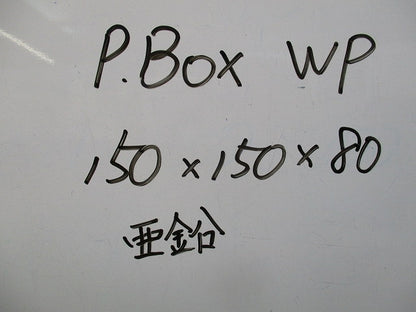 P.Box WP
150×150×80
亜鉛